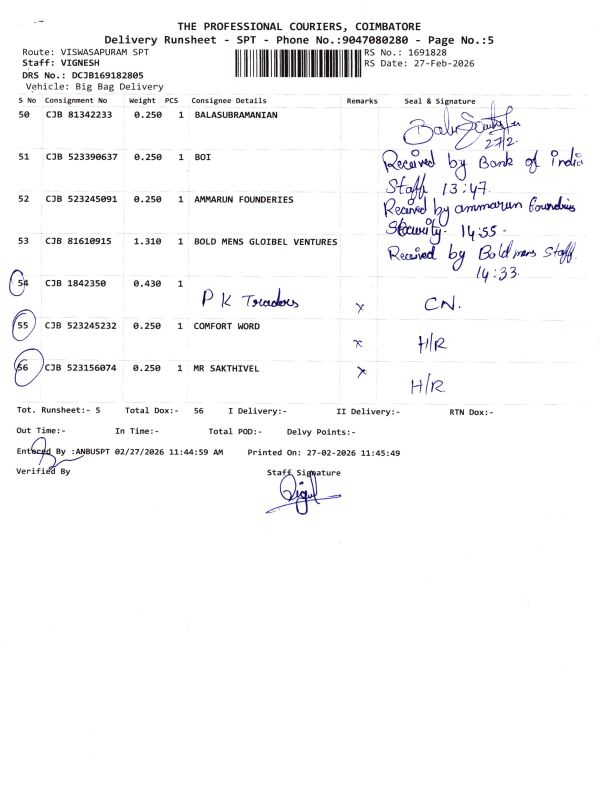 THE PROFESSIONAL COURIERS, COIMBATORE
Delivery Runsheet - SPT - Phone No.:9047080280 - Page No.:5
Route: VISWASAPURAM SPT RS No.: 1691828
Staff: VIGNESH RS Date: 27-Feb-2026
DRS No.: DCJB169182805
Vehicle: Big Bag Delivery
S No Consignment No Weight PCS Consignee Details Remarks Seal & Signature
50 CJB 81342233 0.250 1 BALASUBRAMANIAN
27/2
51 CJB 523390637 0.250 1 BOI Received by Bank of india
Staff 13:47
52 CJB 523245091 0.250 1 AMMARUN FOUNDERIES Received by ammarun foundries
Security. 14:55.
53 CJB 81610915 1.310 1 BOLD MENS GLOIBEL VENTURES Received by Bold mens Staff
14:33.
54 CJB 1842350 0.430 1
P K Traders x CN.
55 CJB 523245232 0.250 1 COMFORT WORD
x H/R
56 CJB 523156074 0.250 1 MR SAKTHIVEL x
H/R
Tot. Runsheet:- 5 Total Dox:- 56 I Delivery:- II Delivery:- RTN Dox:-
Out Time:- In Time:- Total POD:- Delvy Points:-
Entered By :ANBUSPT 02/27/2026 11:44:59 AM Printed On: 27-02-2026 11:45:49
Verified By Staff Signature